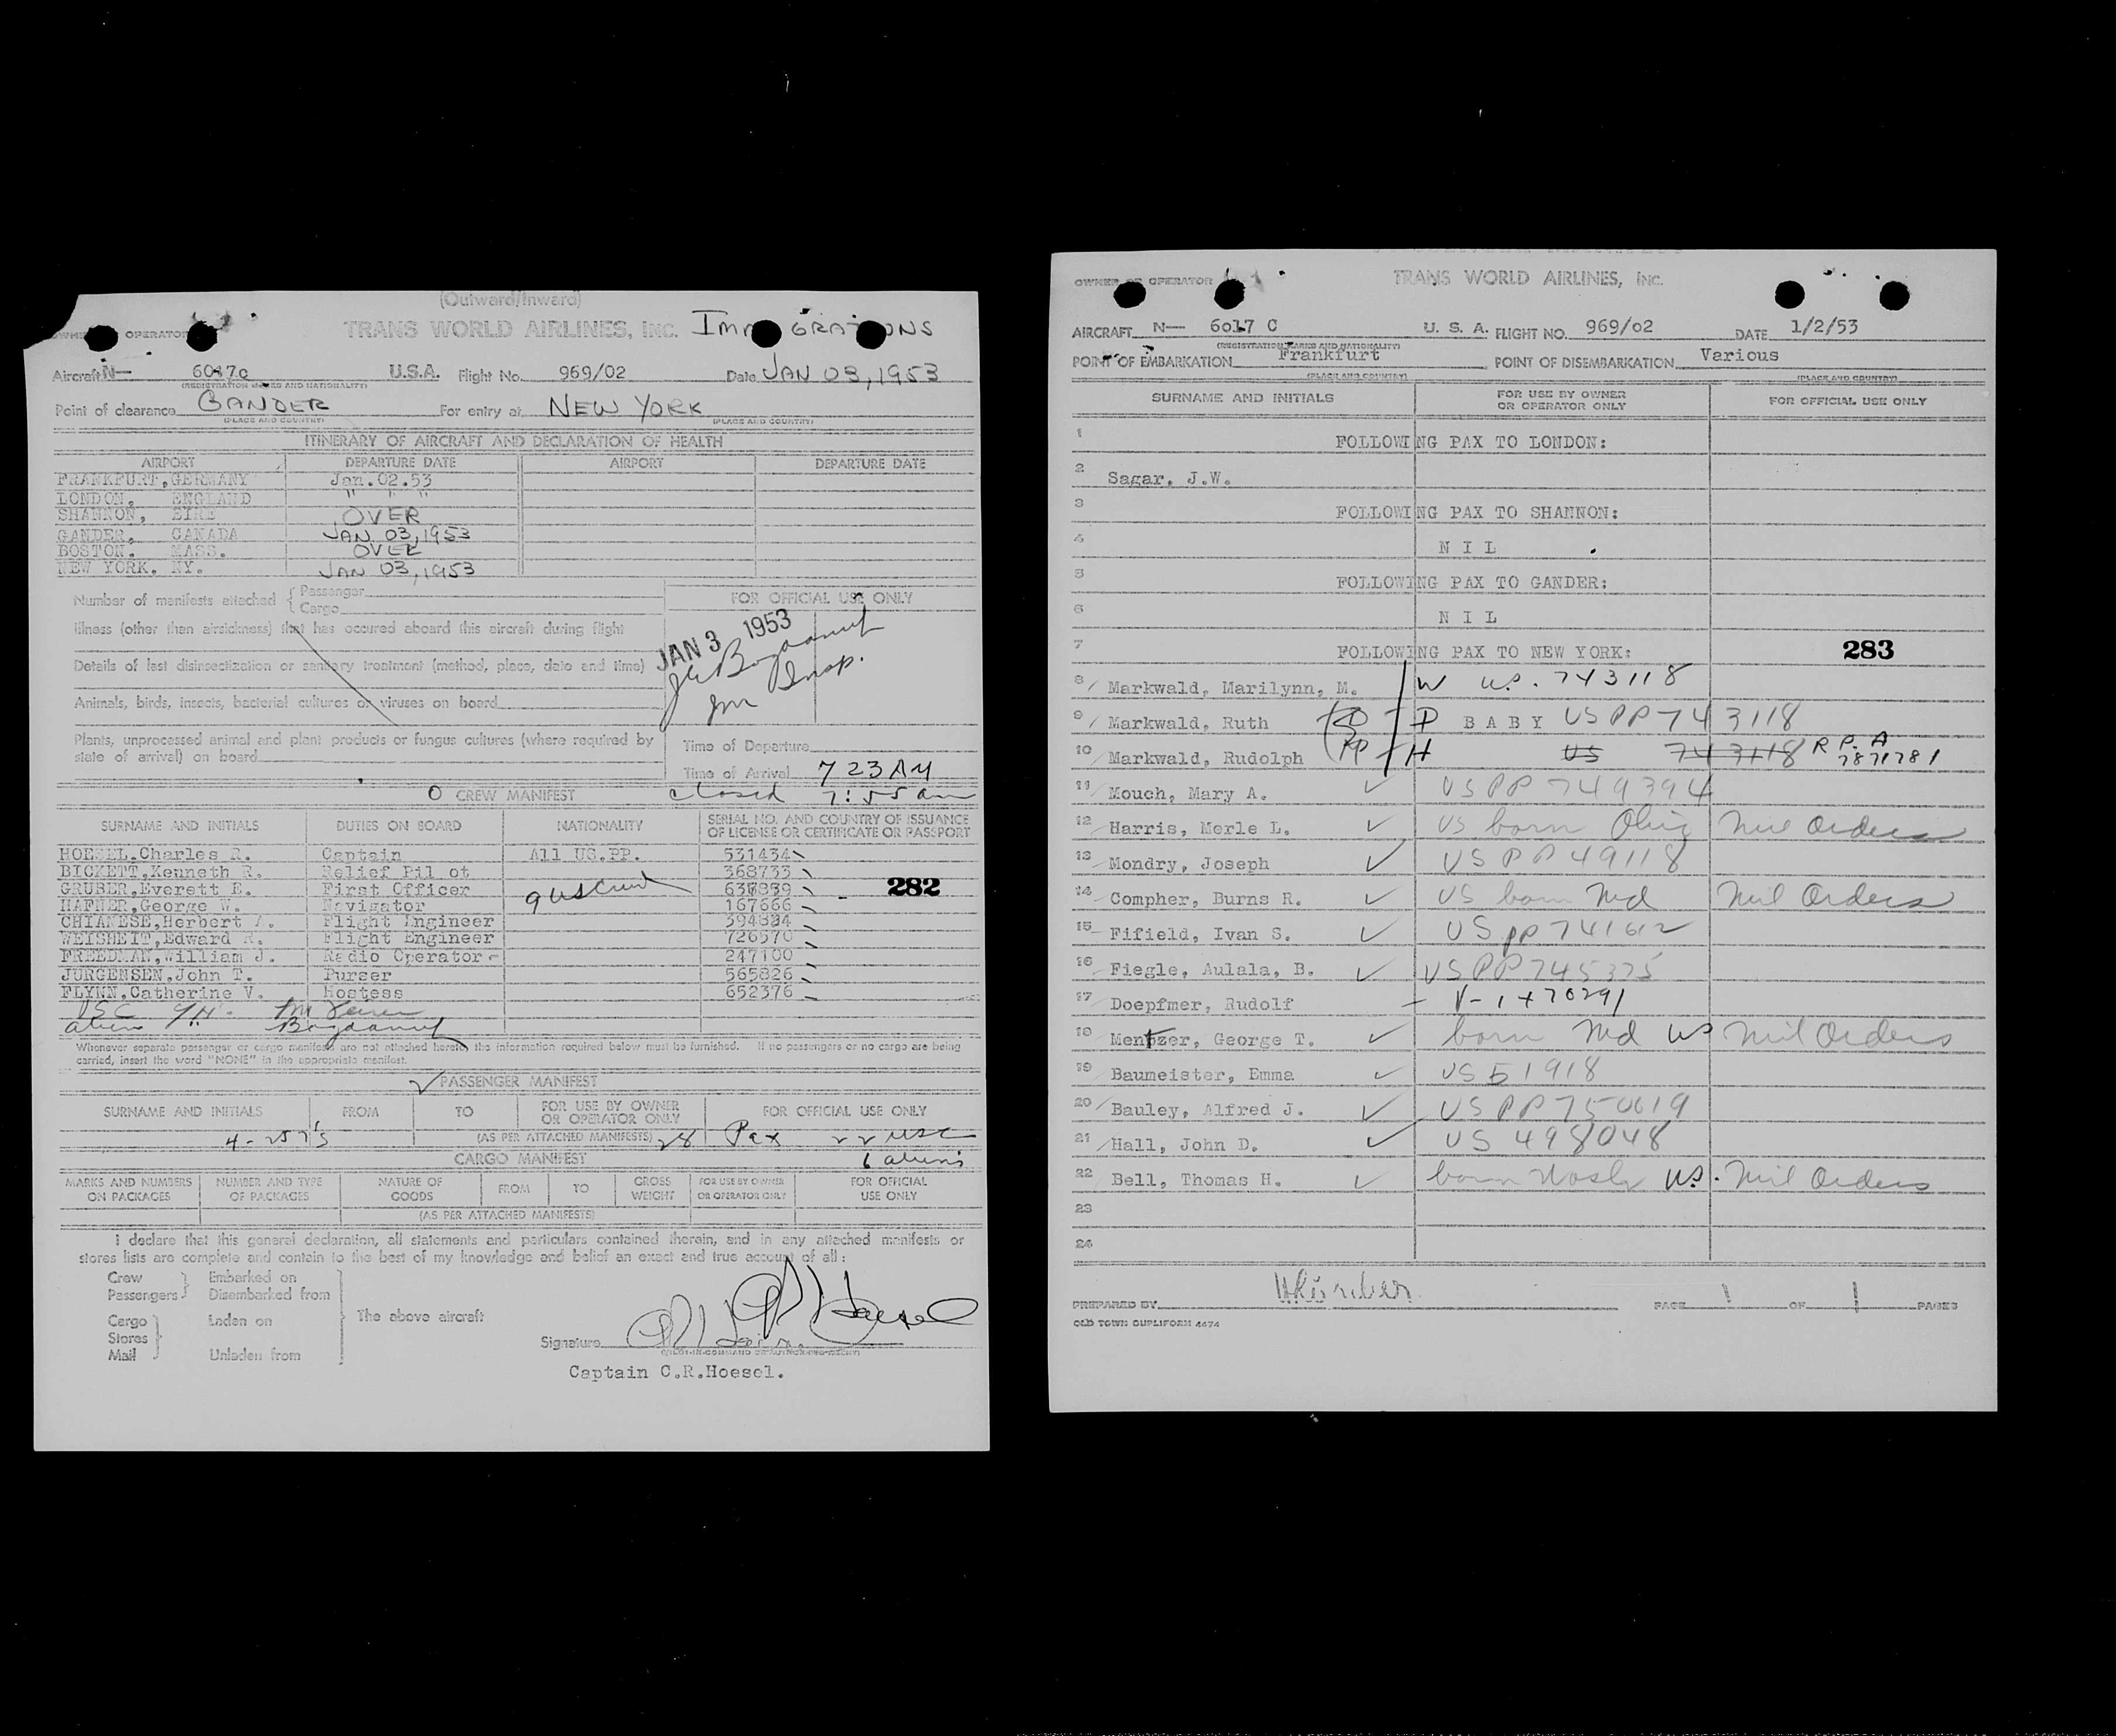 (Outward/Inward)
OWNER OPERATOR TRANS WORLD AIRLINES, INC. IMMIGRATIONS
Aircraft N— 6017C U.S.A. Flight No. 969/02 Date JAN 03, 1953
(REGISTRATION MARKS AND NATIONALITY)
Point of clearance GANDER For entry at NEW YORK
(PLACE AND COUNTRY) (PLACE AND COUNTRY)
ITINERARY OF AIRCRAFT AND DECLARATION OF HEALTH
AIRPORT DEPARTURE DATE AIRPORT DEPARTURE DATE
FRANKFURT, GERMANY Jan.02.53
LONDON, ENGLAND " " "
SHANNON, EIRE OVER
GANDER, CANADA JAN 03, 1953
BOSTON. MASS. OVER
NEW YORK. NY. JAN 03, 1953
Number of manifests attached { Passenger
Cargo
FOR OFFICIAL USE ONLY
Illness (other than airsickness) that has occured aboard this aircraft during flight
JAN 3 1953
Details of last disinsectization or sanitary treatment (method, place, date and time)
Imm Insp.
Animals, birds, insects, bacterial cultures or viruses on board
Plants, unprocessed animal and plant products or fungus cultures (where required by
state of arrival) on board
Time of Departure
Time of Arrival 7 23 AM
closed 7:55 am
O CREW MANIFEST
SURNAME AND INITIALS DUTIES ON BOARD NATIONALITY SERIAL NO. AND COUNTRY OF ISSUANCE
OF LICENSE OR CERTIFICATE OR PASSPORT
HOESEL,Charles R. Captain All US.PP. 531434
BICKETT,Kenneth R. Relief Pil ot 368733
GRUBER,Everett E. First Officer 9 US Crew 282
HAFNER,George W. Navigator 167666
CHIANESE,Herbert A. Flight Engineer
WEISHEIT,Edward R. Flight Engineer 726570
FREEDMAN,William J. Radio Operator 247100
JURGENSEN,John T. Purser 565826
FLYNN,Catherine V. Hostess 652376
Whenever separate passenger or cargo manifests are not attached hereto, the information required below must be furnished. If no passengers or no cargo are being
carried, insert the word "NONE" in the appropriate manifest.
PASSENGER MANIFEST
SURNAME AND INITIALS FROM TO FOR USE BY OWNER
OR OPERATOR ONLY FOR OFFICIAL USE ONLY
4-257's (AS PER ATTACHED MANIFESTS) 28 Pax 22 USC
CARGO MANIFEST 6 aliens
MARKS AND NUMBERS
ON PACKAGES NUMBER AND TYPE
OF PACKAGES NATURE OF
GOODS FROM TO GROSS
WEIGHT FOR USE BY OWNER
OR OPERATOR ONLY FOR OFFICIAL
USE ONLY
(AS PER ATTACHED MANIFESTS)
I declare that this general declaration, all statements and particulars contained therein, and in any attached manifests or
stores lists are complete and contain to the best of my knowledge and belief an exact and true account of all:
Crew Embarked on
Passengers Disembarked from
The above aircraft
Cargo Laden on
Stores
Mail Unladen from
Signature
Captain C.R.Hoesel.
OWNER OR OPERATOR TRANS WORLD AIRLINES, INC.
AIRCRAFT N— 6017 C U. S. A. FLIGHT NO. 969/02 DATE 1/2/53
(REGISTRATION MARKS AND NATIONALITY)
POINT OF EMBARKATION Frankfurt POINT OF DISEMBARKATION Various
(PLACE AND COUNTRY) (PLACE AND COUNTRY)
SURNAME AND INITIALS FOR USE BY OWNER
OR OPERATOR ONLY FOR OFFICIAL USE ONLY
1 FOLLOWING PAX TO LONDON:
2 Sagar, J.W.
3 FOLLOWING PAX TO SHANNON:
4 N I L
5 FOLLOWING PAX TO GANDER:
6 N I L
7 FOLLOWING PAX TO NEW YORK: 283
8 Markwald, Marilynn, M. W US. 743118
9 Markwald, Ruth D B A B Y US PP 743118
10 Markwald, Rudolph PP H US 743118 R P. A 7871781
11 Mouch, Mary A. US PP 749394
12 Harris, Merle L. US born Ohio Mil Orders
13 Mondry, Joseph US PP 49118
14 Compher, Burns R. US born Md Mil Orders
15 Fifield, Ivan S. US PP 741612
16 Fiegle, Aulala, B. US PP 745375
17 Doepfmer, Rudolf V-1470291
18 Mentzer, George T. born Md US Mil Orders
19 Baumeister, Emma US 51918
20 Bauley, Alfred J. US PP 750619
21 Hall, John D. US 498048
22 Bell, Thomas H. born Wash US. Mil Orders
23
24
PREPARED BY PAGE 1 OF 1 PAGES
OLD TOWN DUPLIFORM 4674